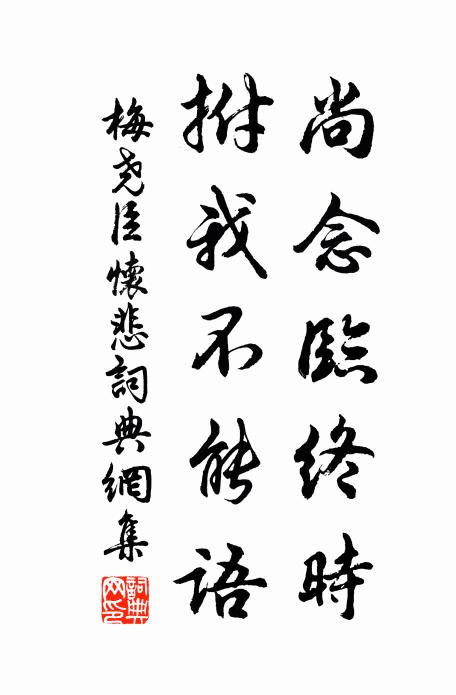 尚念臨終時
拊我不能語
梅堯臣懷悲詞典網集
詞典網印